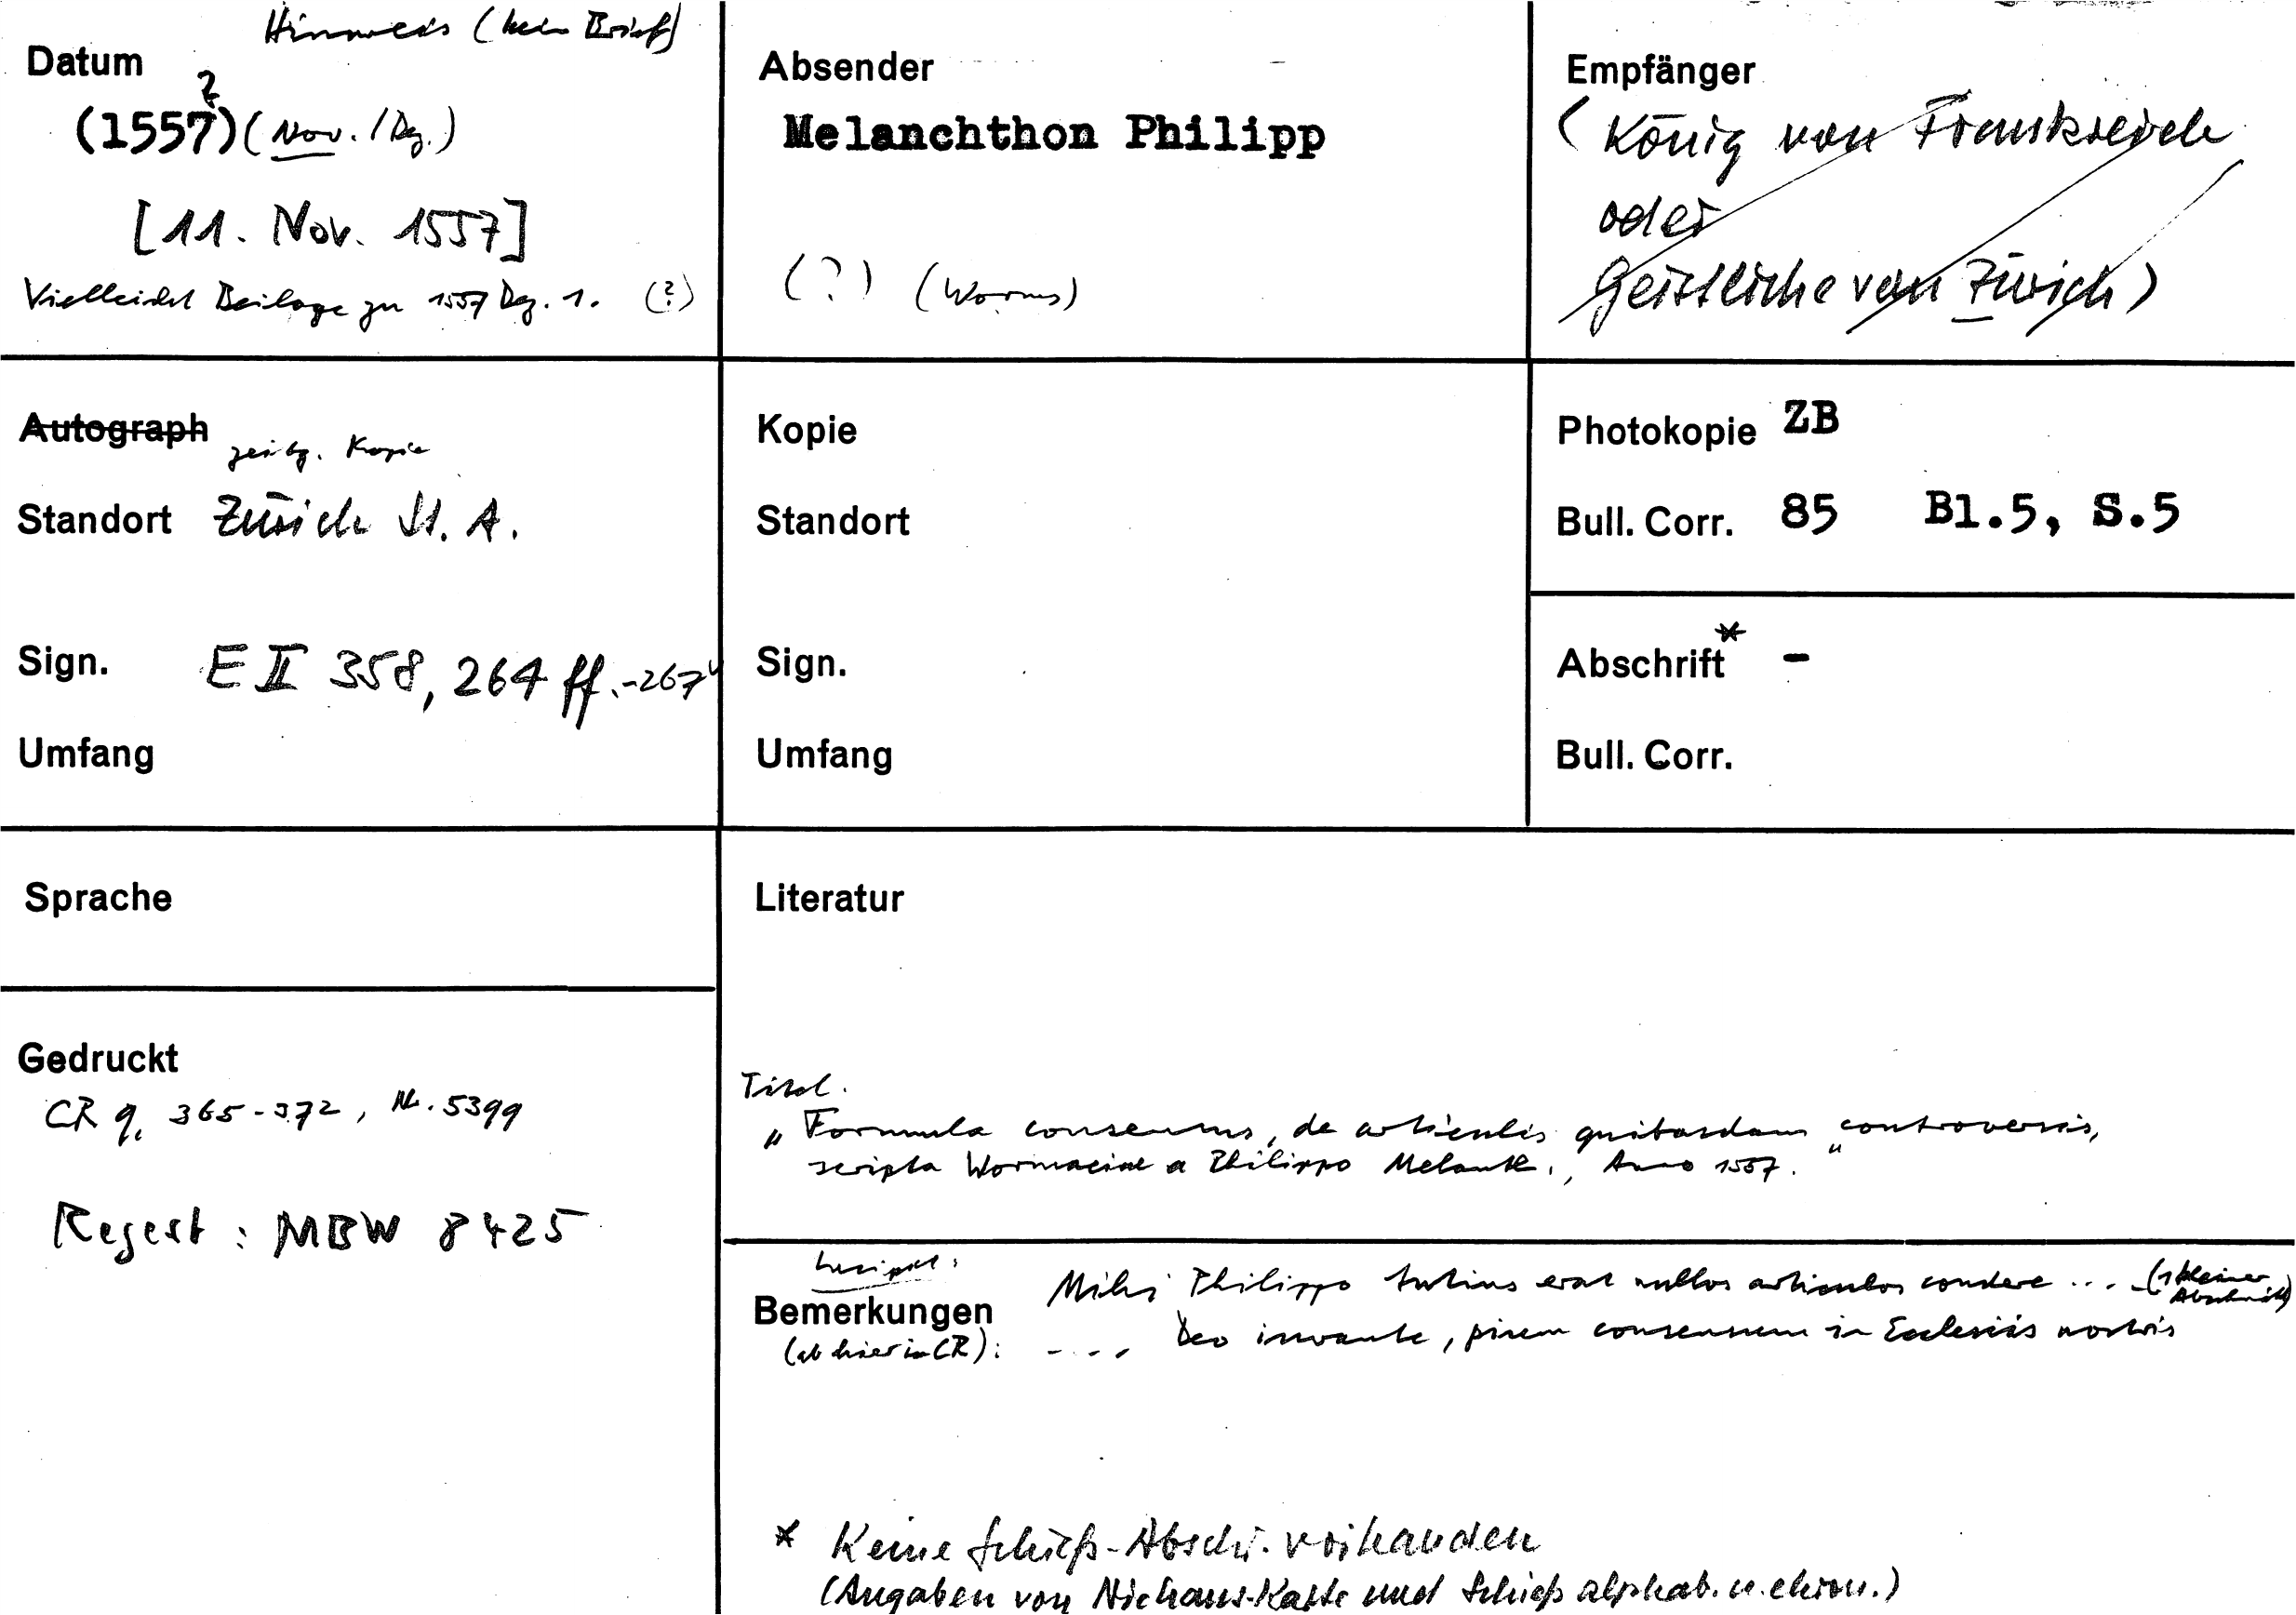 Hinweis (kein Brief)
Datum
(1557?) (Nov./Dez.)
[11. Nov. 1557]
Vielleicht Beilage zu 1557 Dez. 1. (?)
Absender
Melanchthon Philipp
(?) (Worms)
Empfänger
(König von Frankreich
oder
Geistliche von Zürich)
Autograph zeitg. Kopie
Standort Zürich St. A.
Sign. E II 358, 264 ff. -267v
Umfang
Kopie
Standort
Sign.
Umfang
Photokopie ZB
Bull. Corr. 85 Bl.5, S.5
Abschrift* -
Bull. Corr.
Sprache
Gedruckt
CR 9, 365-372, Nr. 5399
Regest: MBW 8425
Literatur
Titel.
"Formula consensus, de articulis quibusdam controversis,
scripta Wormaciae a Philippo Melanth., Anno 1557."
Bemerkungen
Incipit: Mihi Philippo tutius erat nullos articulos condere ... (1 kleiner Abschnitt)
(ab hier in CR): .... Deo iuvante, pium consensum in Ecclesiis nostris
* Keine Schieß-Abschr. vorhanden
(Angaben von Niehaus-Karte und Schieß alphab. u. chron.)